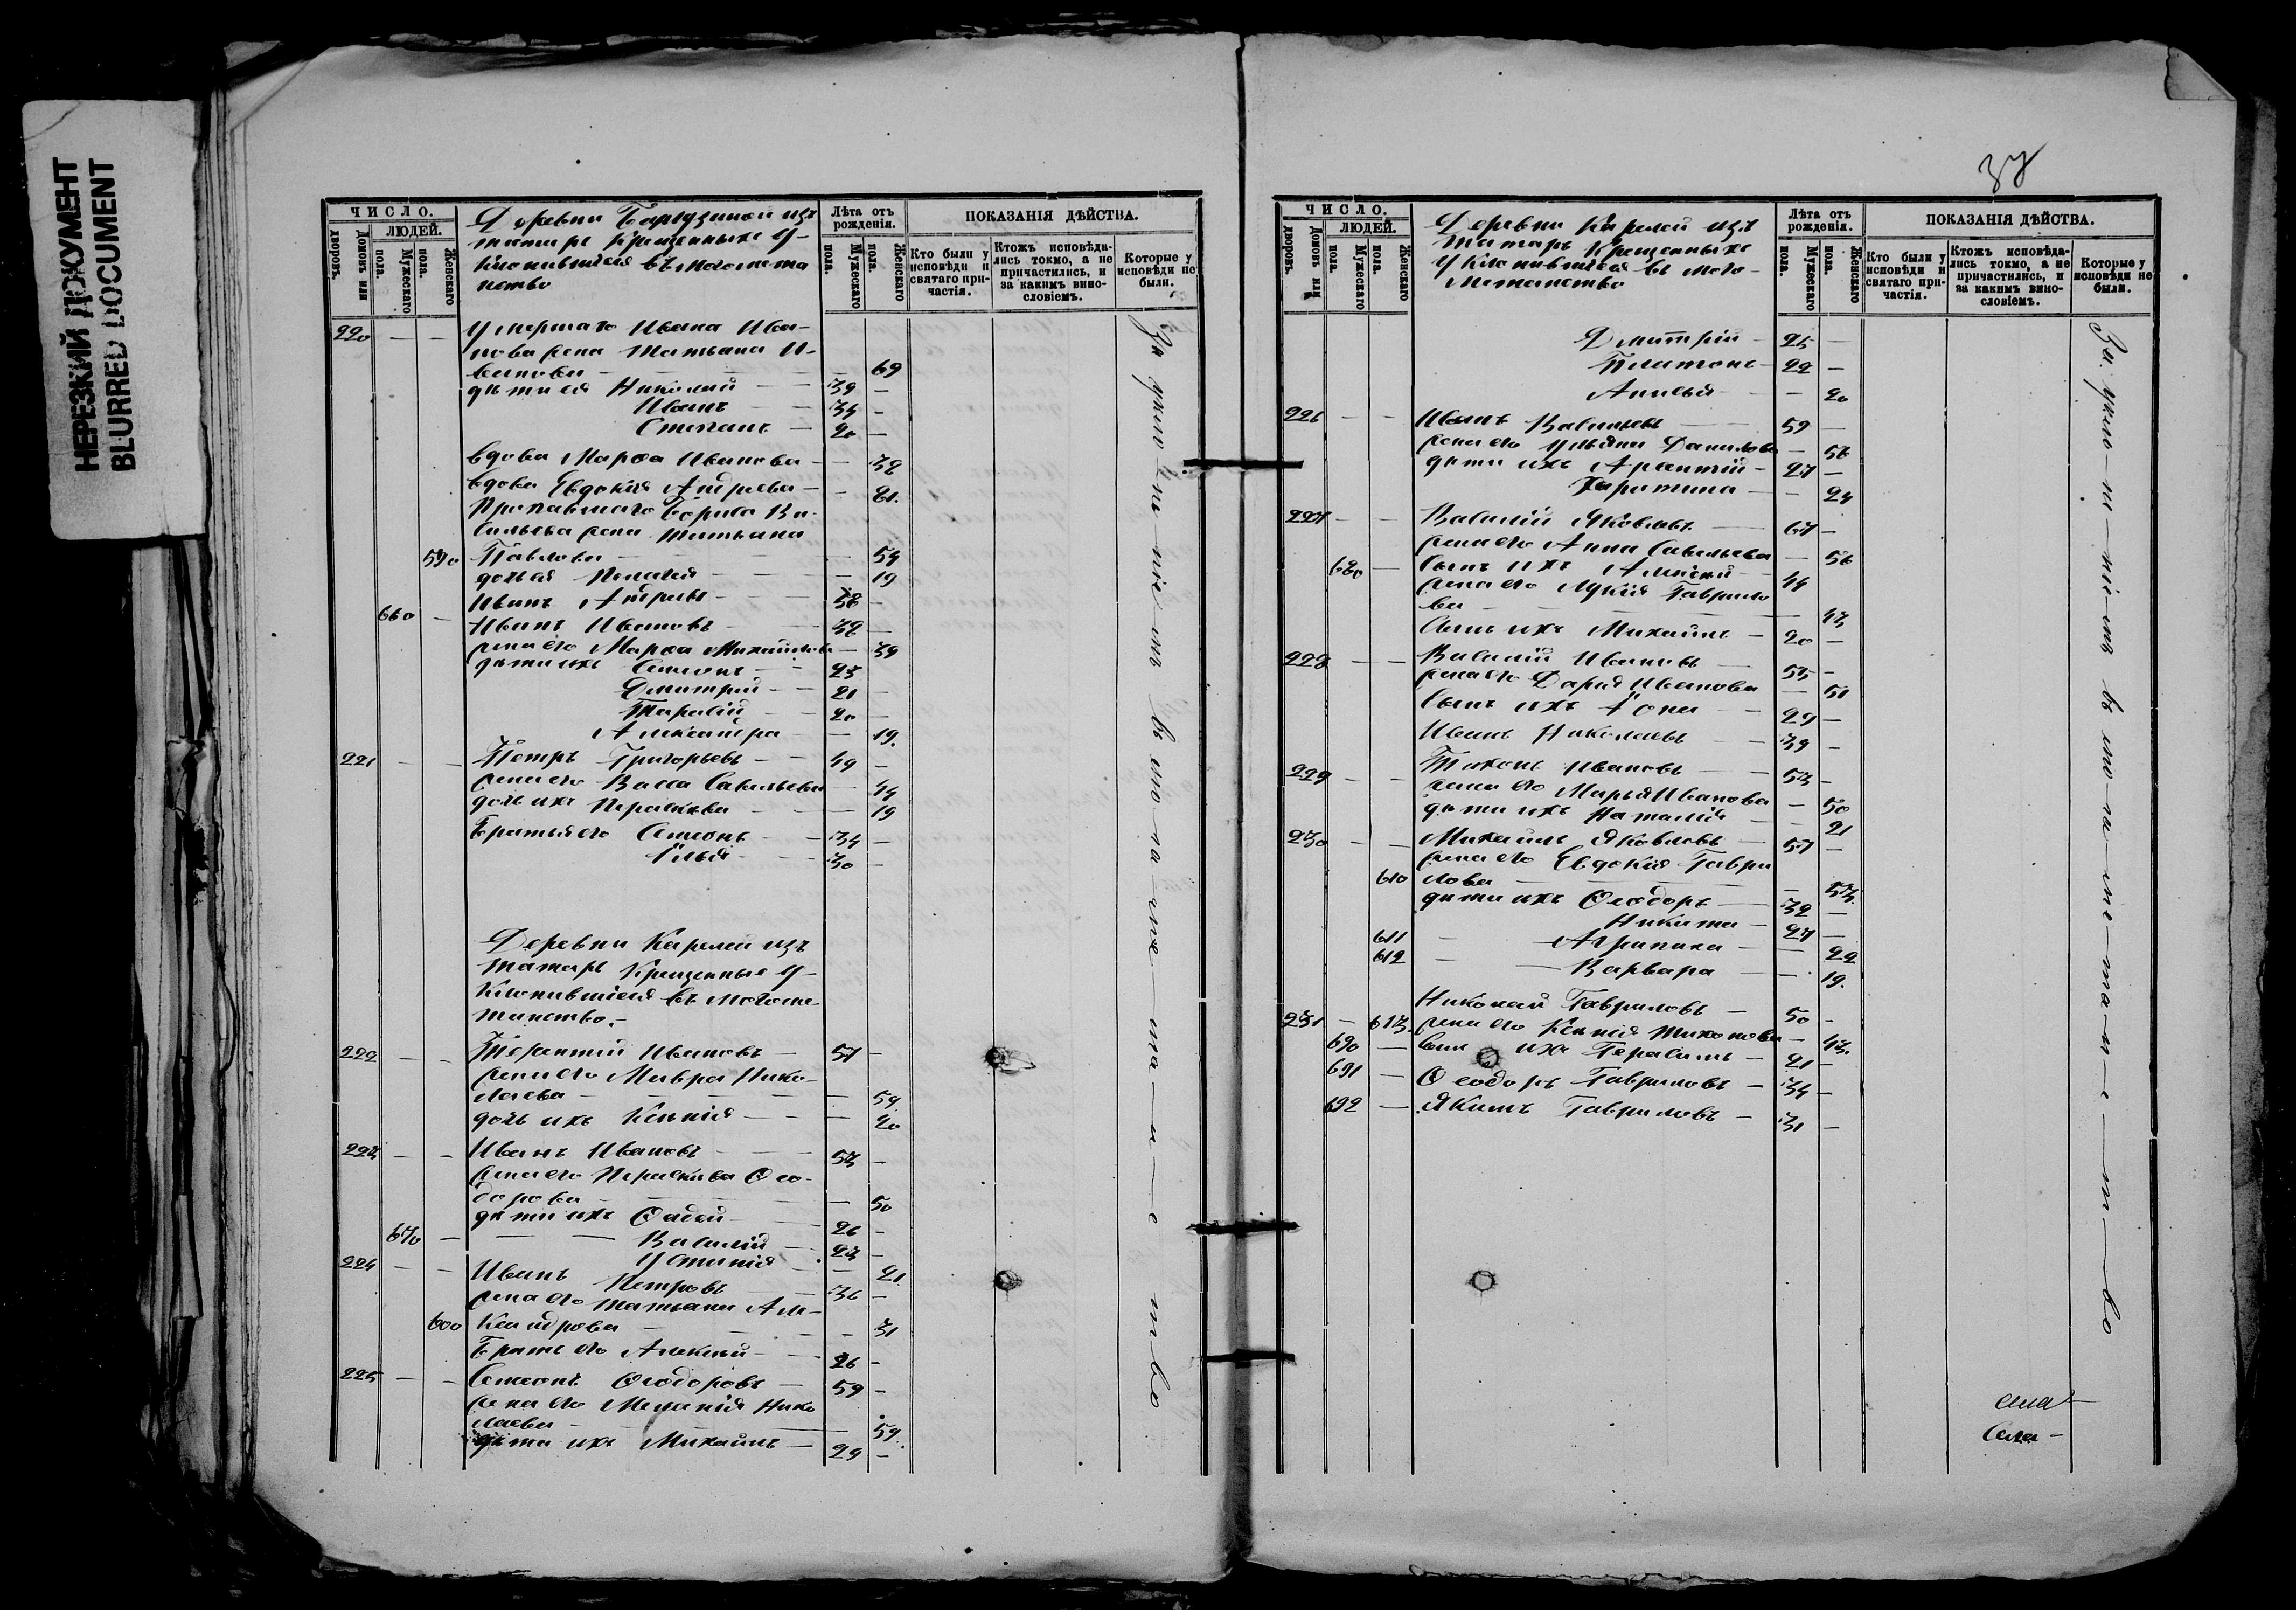 НЕРЕЗКИЙ ДОКУМЕНТ
BLURRED DOCUMENT
ЧИСЛО.
ЛЮДЕЙ.
Домовъ или дворовъ.
Мужескаго пола.
Женскаго пола.
Деревни изъ
татаръ Крещенныхъ у-
клонившіеся въ Магомета
нство
Лѣта отъ рожденія.
Мужескаго пола.
Женскаго пола.
ПОКАЗАНІЯ ДѢЙСТВА.
Кто были у исповѣди и святаго причастія.
Ктожъ исповѣдались токмо, а не причастились, и за какимъ винословіемъ.
Которые у исповѣди не были.
220 — — умершаго Ивана Ива-
нова жена Татьяна И-
ванова — 69
дѣти ея Николай — 39 —
Иванъ — 34 —
Степанъ — 20 —
вдова Марѳа Иванова — — 38
вдова Евдокія Андреева — — 81.
Пропавшаго Бориса Ва-
сильева жена Татьяна
590 Павлова — — 54
дочь ея Пелагея — — 19
Иванъ Андреевъ — 38 —
660 — Иванъ Ивановъ — 42 —
жена его Марѳа Михайлова — 39
дѣти ихъ Симеонъ — 23
Дмитрій — 21 —
Тарасій — 20 —
Александра — — 19.
221 — — Петръ Григорьевъ — 49 —
жена его Васса Савельева — 44
дочь ихъ Параскева — — 19
Братья его Симеонъ — 34 —
Илья — 30 —
Деревни Карелей изъ
татаръ Крещенные у-
клонившіеся въ Магоме-
танство.-
222 — — Терентій Ивановъ — 57 —
жена его Мавра Нико-
лаева — — 54.
дочь ихъ Ксенія — — 20
223 — — Иванъ Ивановъ — 53 —
жена его Параскева Ѳео-
дорова — — 50
дѣти ихъ Ѳадей — 26 —
670 — — — Василій — 23 —
Устинія — — 21.
224 — — Иванъ Петровъ — 36 —
жена его Татьяна Але-
600 ксандрова — — 31
Братъ его Алексѣй — 26 —
225 — — Симеонъ Ѳеодоровъ — 59 —
жена его Меланія Нико
лаева — — 59.
дѣти ихъ Михаилъ — 29 —
За уклоненіемъ въ могаметанство
37
ЧИСЛО.
ЛЮДЕЙ.
Домовъ или дворовъ.
Мужескаго пола.
Женскаго пола.
Деревни Карелей изъ
татаръ Крещенныхъ
уклонившіеся въ Маго-
метанство
Лѣта отъ рожденія.
Мужескаго пола.
Женскаго пола.
ПОКАЗАНІЯ ДѢЙСТВА.
Кто были у исповѣди и святаго причастія.
Ктожъ исповѣдались токмо, а не причастились, и за какимъ винословіемъ.
Которые у исповѣди не были.
Дмитрій — 25 —
Платонъ — 22 —
— 20
226 — — Иванъ Васильевъ — 59 —
жена его Ульяна Данилова — 56
дѣти ихъ — 27 —
Харитина — — 24
227 — — Василій Яковлевъ — 67 —
жена его Анна Савельева — 56
680 — сынъ ихъ Алексѣй — 44
жена его Лукія Гаврило
ва — — 43
Сынъ ихъ Михаилъ — 20 —
228 — — Василій Ивановъ — 55 —
жена его Дарья Иванова — 51
сынъ ихъ Іона — 29 —
Иванъ Николаевъ — 39 —
229 — — Тихонъ Ивановъ — 53 —
жена его Марья Иванова — 50
дѣти ихъ Наталія — — 21
230 — — Михаилъ Яковлевъ — 57 —
жена его Евдокія Гаври
610 лова — — 53.
дѣти ихъ Ѳеодоръ — 32 —
Никита — 27 —
611 — Агрипина — — 22
612 — Варвара — — 19.
Николай Гавриловъ — 50 —
231 — 613. жена его Ксенія Тихонова — 43.
690 — сынъ ихъ Герасимъ — 21 —
691 — Ѳеодоръ Гавриловъ — 34 —
692 — Якимъ Гавриловъ — 31 —
За уклоненіемъ въ могаметанство
села —
Села —